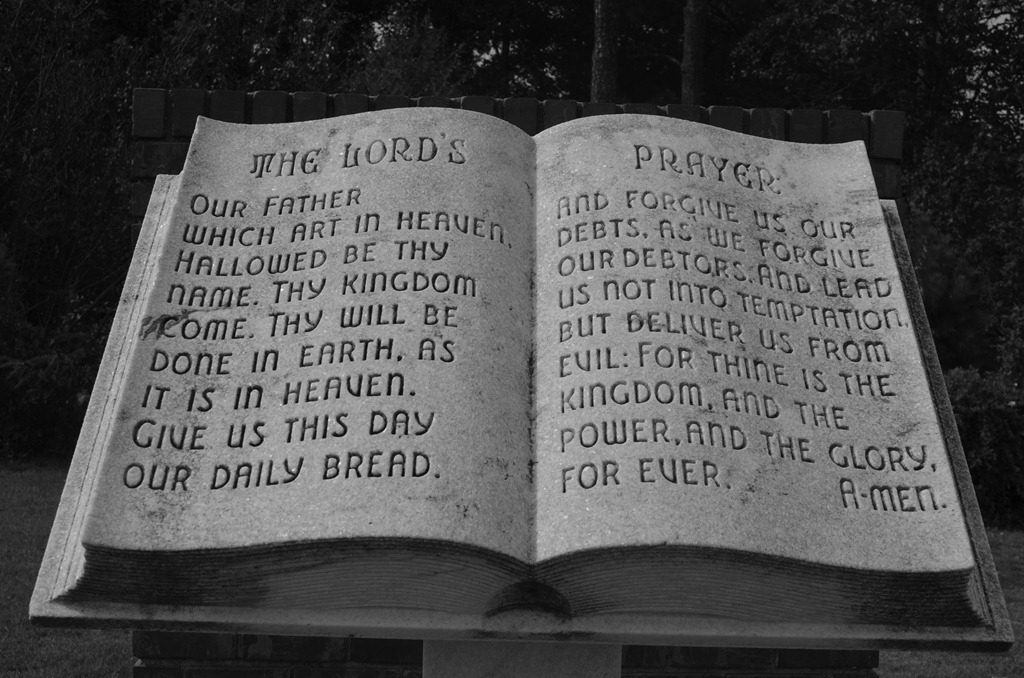 THE LORD'S
OUR FATHER
WHICH ART IN HEAVEN,
HALLOWED BE THY
NAME. THY KINGDOM
COME. THY WILL BE
DONE IN EARTH, AS
IT IS IN HEAVEN.
GIVE US THIS DAY
OUR DAILY BREAD.
PRAYER:
AND FORGIVE US OUR
DEBTS, AS WE FORGIVE
OUR DEBTORS. AND LEAD
US NOT INTO TEMPTATION,
BUT DELIVER US FROM
EVIL: FOR THINE IS THE
KINGDOM, AND THE
POWER, AND THE GLORY,
FOR EVER.
A-MEN.